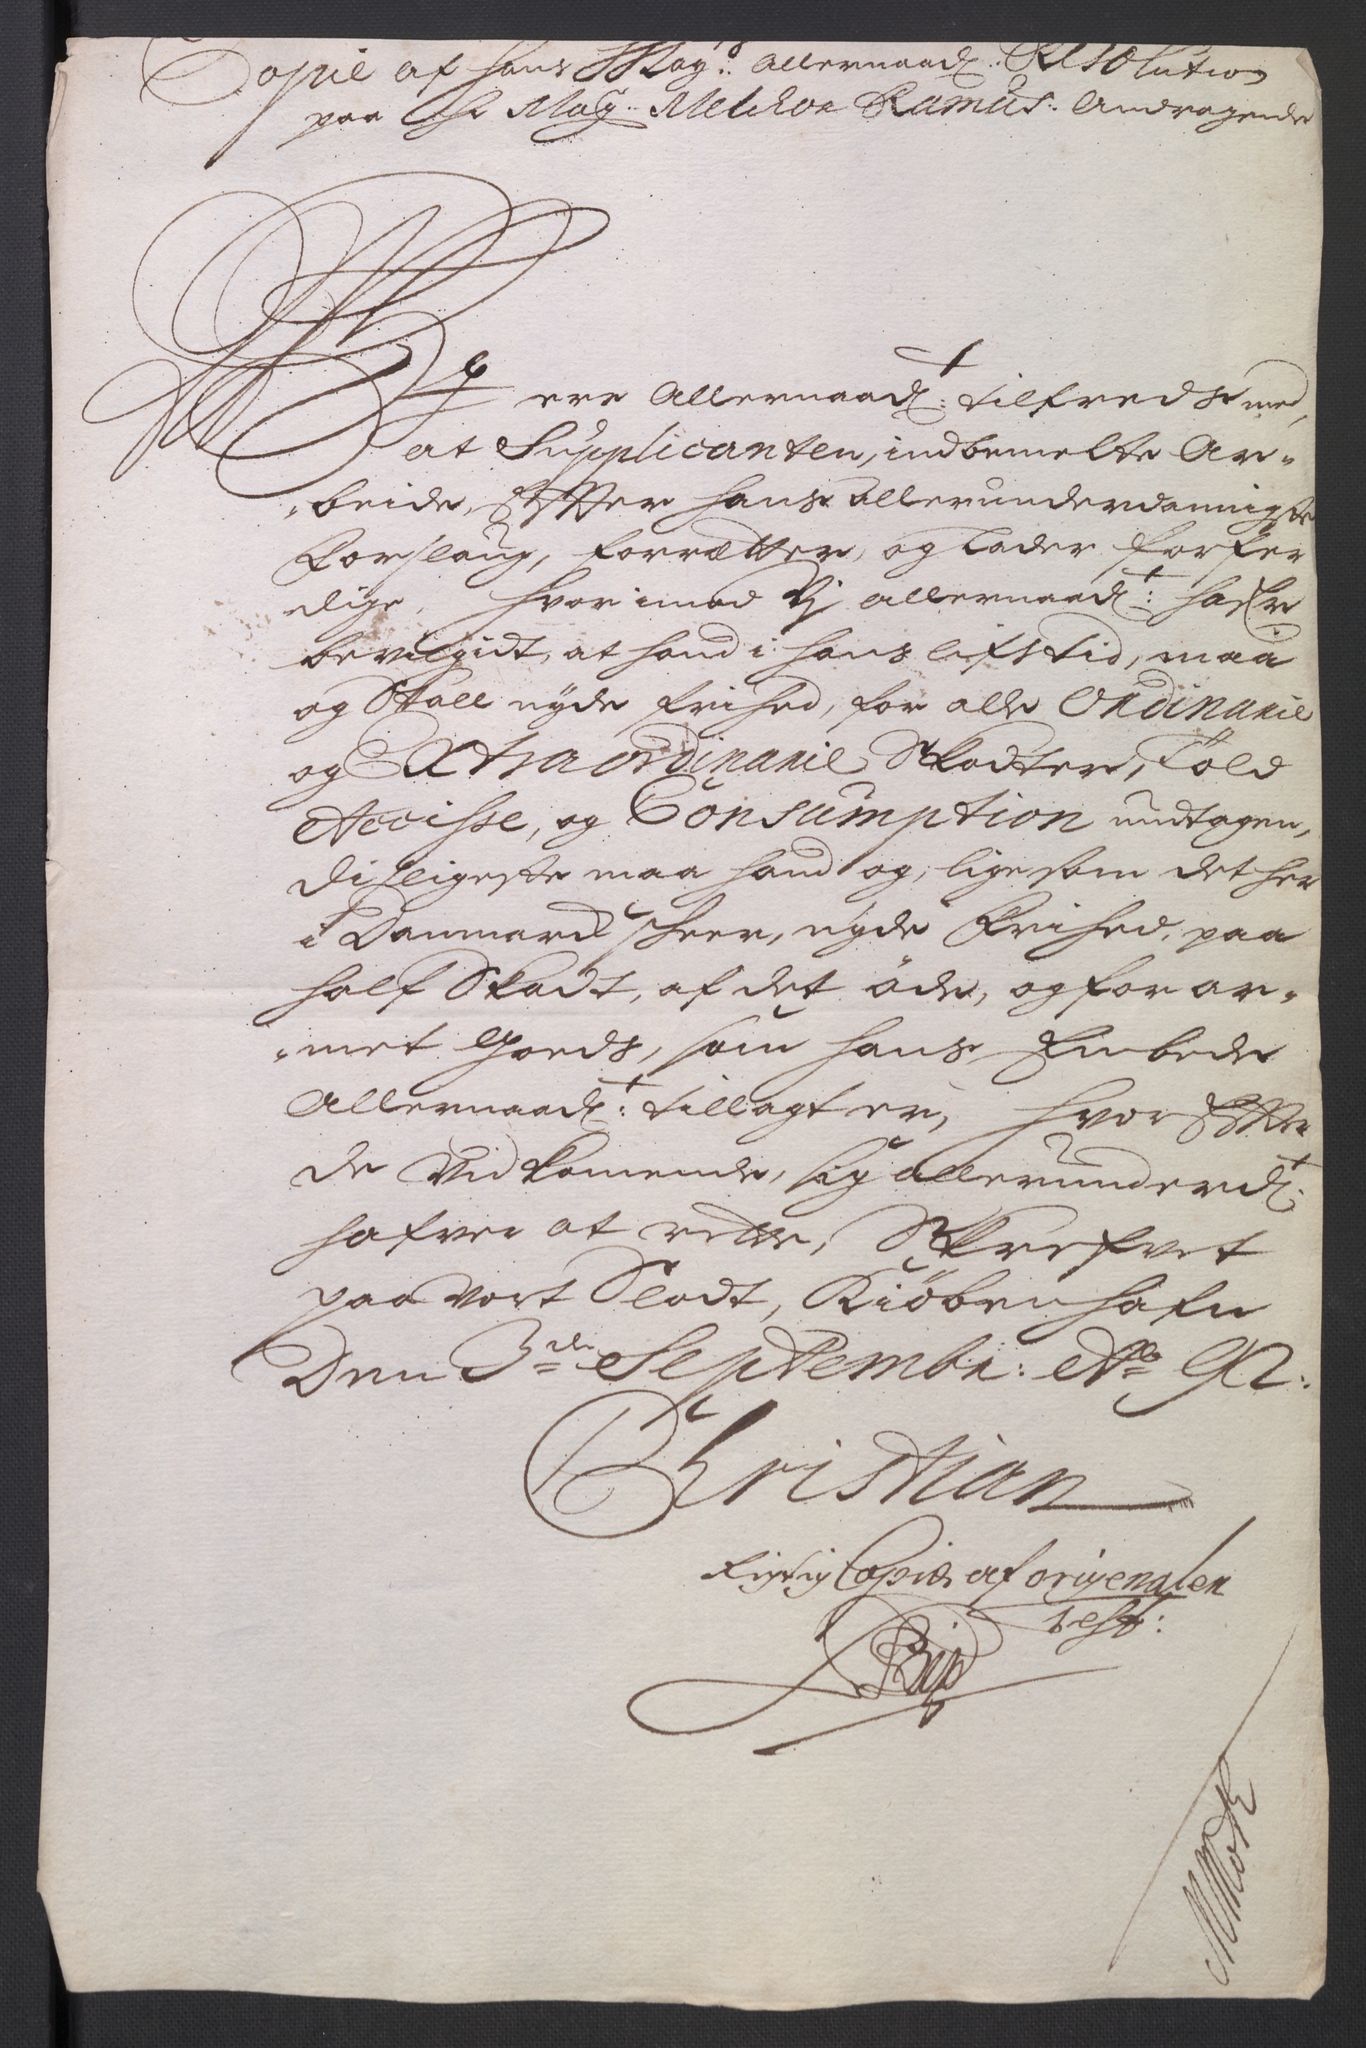 Copie af hans Mayts: Allernaadl: Resolution
paa Hr Mag: Melchor Ramus: Andragende
Vi ere Allernaadl: tilfreds med,
at Supplicanten, indbemelte Ar-
-beide, Efter hans allerunderdannigste
Forslaug, forrætter, og lader forfer
dige, hvorimod Vj allernaadl: hafr
bevilgidt, at hand i hans lifstid, maa
og Skall nyde frihed, for alle Ordinarie
og Extraordinarie Skatter, Told
Accisse, og Consumption undtagen,
disligeste maa hand og, ligesom det her
i Danmarck scheer, nyde Frihed, paa
half Skadt, af det öde, og forar-
-met Goeds, som hans Embede
Allernaadl: tillagt er, hvor Efter
de Vidkomende, sig allerunderdl:
hafver at rette, Skrefvet
paa Vort Slodt, Kiöbenhafn
Den 3de Septembr: Ao 92:
Christian
Rigtig Copie af origenalen
test: